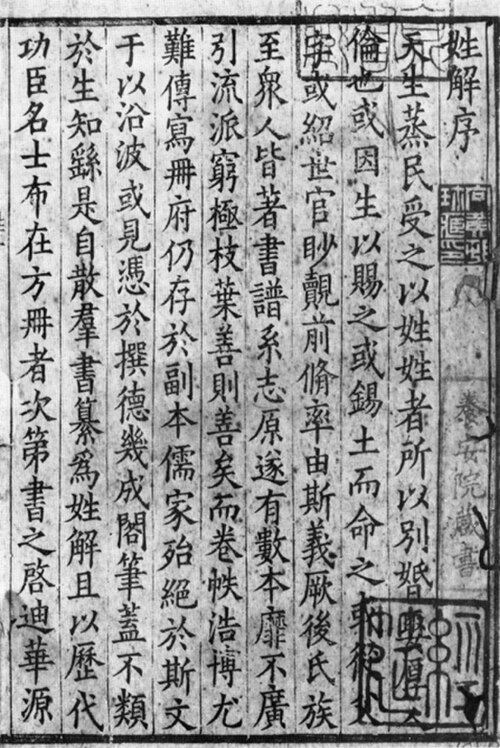 姓解序
天生蒸民受之以姓姓者所以別婚娶厚人
倫也或因生以賜之或錫土而命之
字或紹世官眇覿前脩率由斯義厥後氏族
至衆人皆著書譜系志原遂有數本靡不廣
引流派窮極枝葉善則善矣而卷帙浩博尤
難傳寫冊府仍存於副本儒家殆絕於斯文
于以沿波或見憑於撰德幾成閣筆蓋不類
於生知繇是自散羣書纂爲姓解且以歷代
功臣名士布在方冊者次第書之啓迪華源
養安院藏書